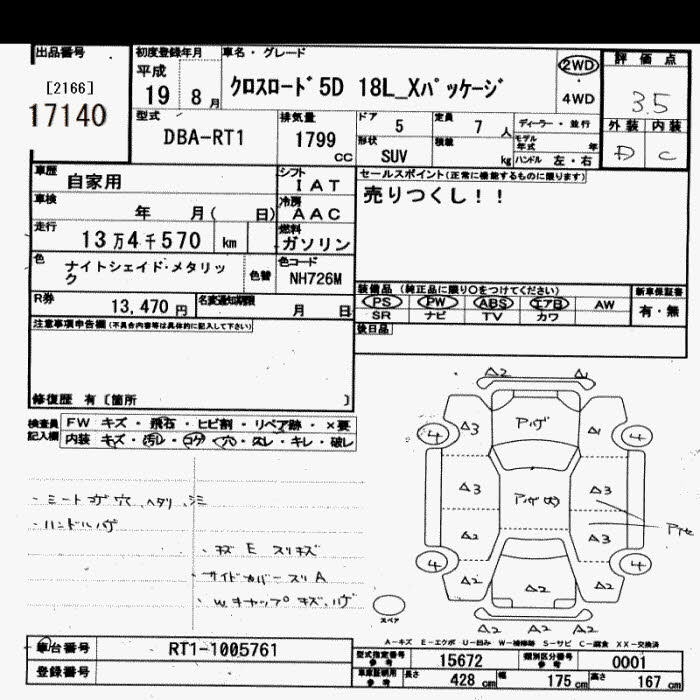 出品番号
[2166]
17140
初度登録年月
平成
19 8 月
車名・グレード
クロスロード 5D 18L_Xパッケージ
2WD
4WD
評価点
3.5
外装 内装
D C
型式
DBA-RT1
排気量
1799
cc
ドア 5
定員 7 人
形状
SUV
積載 kg
ディーラー・並行
モデル年式 年
ハンドル 左・右
車歴
自家用
シフト
IAT
冷房
AAC
車検
年 月( 日)
走行
13万4千570 km
燃料
ガソリン
色
ナイトシェイド・メタリック
色替
色コード
NH726M
R券
13,470 円
名変通知期限
月 日
セールスポイント(正常に機能するものに限ります)
売りつくし！！
装備品(純正品に限り○をつけてください)
PS PW ABS エアB AW
SR ナビ TV カワ
新車保証書
有・無
後日品
注意事項申告欄(不具合内容等は具体的に記入して下さい)
修復歴 有〔箇所 〕
検査員記入欄
FW キズ・飛石・ヒビ割・リペア跡・×要
内装 キズ・汚レ・コゲ・穴・スレ・キレ・破レ
・シートコゲ穴、ヘタリ、シミ
・ハンドルハゲ
・キズ E スリキズ
・サイドカバースリA
・Wキャップキズ、ハゲ
A2 A1
A3 アハゲ A1
4 4
A3 アハゲ A3
A2 A3
4 4
A2 A2 A2
A2 A2 A2
スペア
A-キズ E-エクボ U-凹み W-補修跡 S-サビ C-腐食 XX-交換済
車台番号
RT1-1005761
登録番号
型式指定番号
参考
15672
類別区分番号
参考
0001
車庫証明用
参考
長さ 428 cm
幅 175 cm
高さ 167 cm